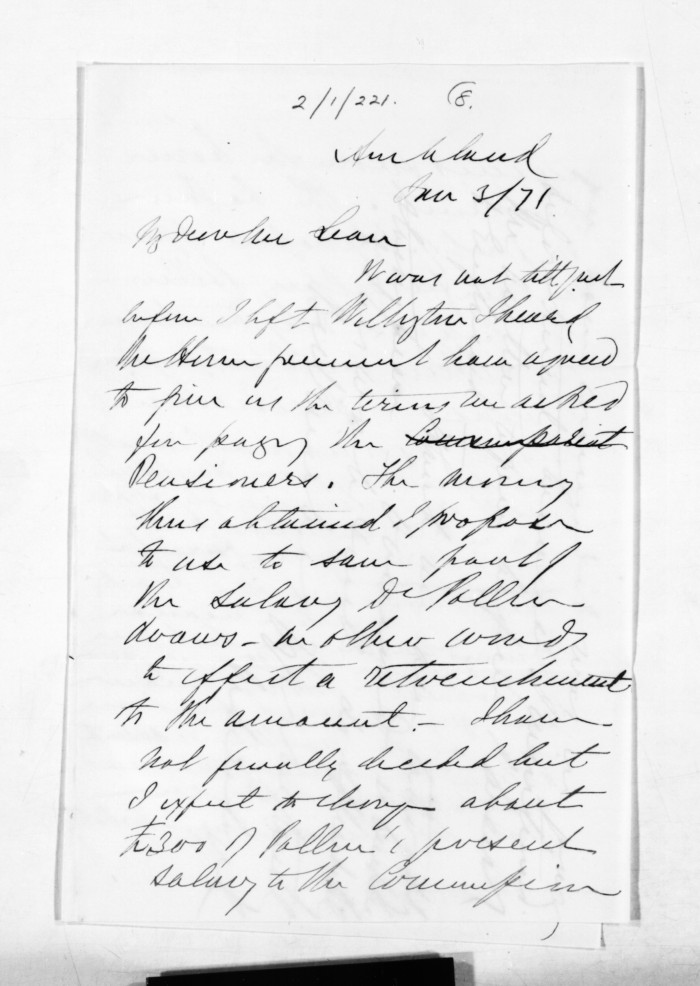 2/1/221. (8.
Auckland
Jan 3/71
My dear Mc Lean
It was not till just
before I left Wellington I heard
the Home Government have agreed
to give us the terms we asked
for paying the
Pensioners. The money
thus obtained I propose
to use to save part of
the salary Dr Pollen
draws - in other words
to effect a retrenchment
to the amount. - I have
not finally decided but
I expect to charge about
£300 of Pollen's present
salary to the Commission